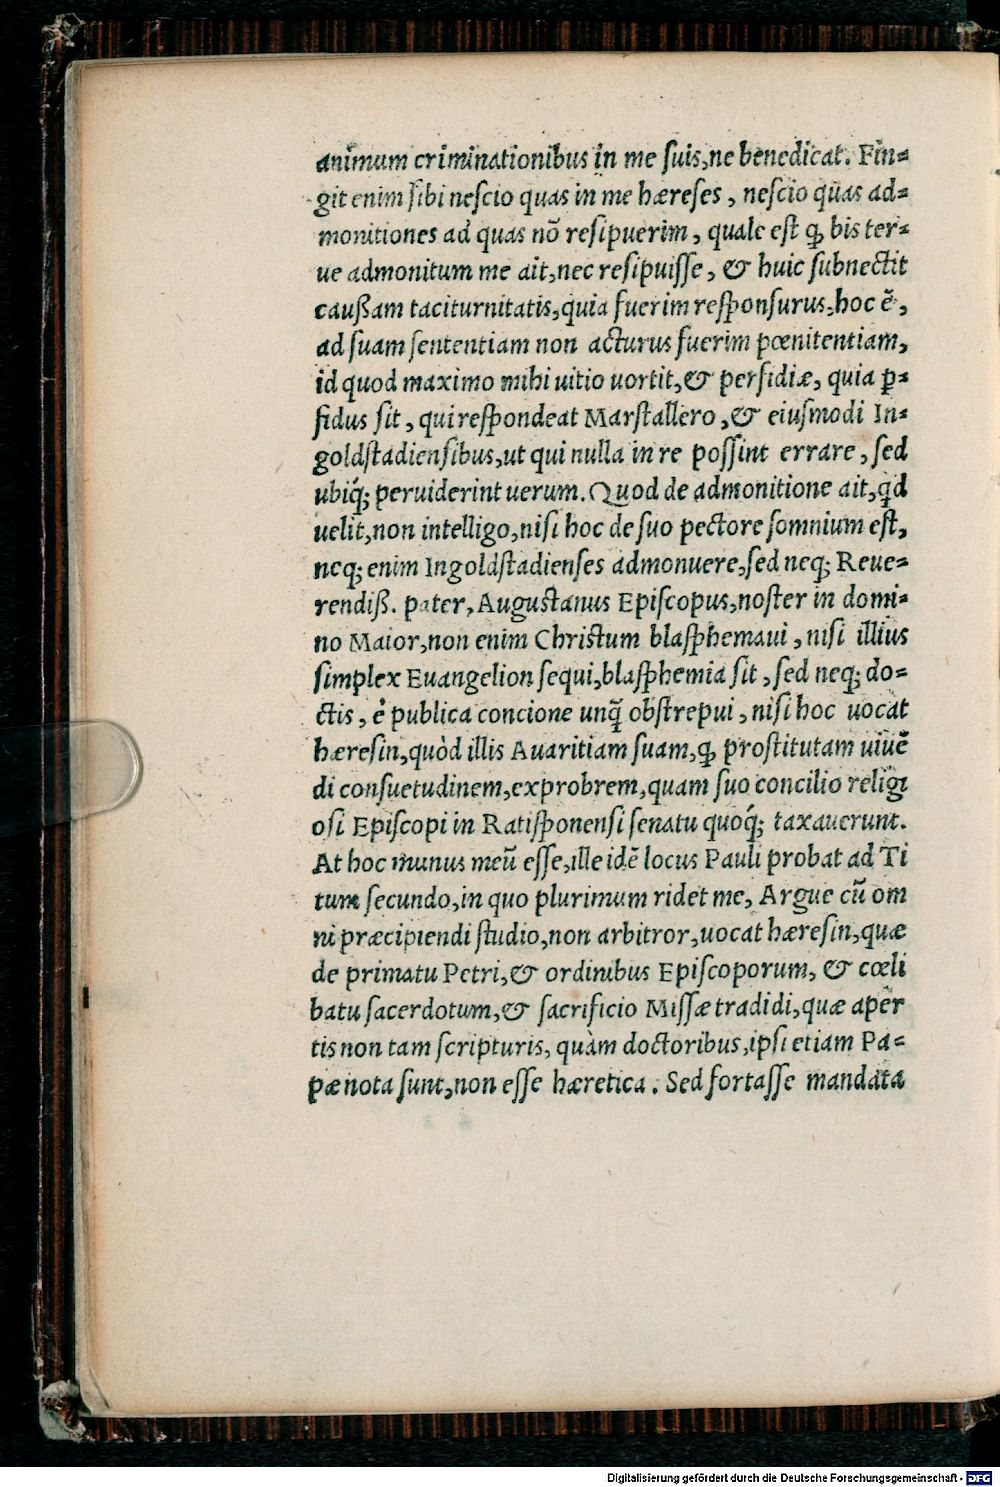 animum criminationibus in me ſuis,ne benedicat. Fin⸗
git enim ſibi neſcio quas in me hæreſes , neſcio quas ad⸗
monitiones ad quas nō reſipuerim , quale eſt ꝙ bis ter⸗
ue admonitum me ait,nec reſipuiſſe , & huic ſubnectit
caußam taciturnitatis,quia fuerim reſponſurus,hoc ē ,
ad ſuam ſententiam non acturus fuerim pœnitentiam,
id quod maximo mihi uitio uortit,& perfidiæ, quia ꝑ⸗
fidus ſit , qui reſpondeat Marſtallero , & eiuſmodi In⸗
goldſtadienſibus,ut qui nulla in re poſſint errare , ſed
ubiq́; peruiderint uerum. Quod de admonitione ait,qd
uelit,non intelligo,niſi hoc de ſuo pectore ſomnium eſt,
neq; enim Ingoldſtadienſes admonuere,ſed neq; Reue⸗
rendiß. pater, Auguſtanus Epiſcopus,noſter in domi⸗
no Maior,non enim Chriſtum blaſphemaui , niſi illius
ſimplex Euangelion ſequi,blaſphemia ſit , ſed neq; do⸗
ctis , ė publica concione unq̄ obſtrepui , niſi hoc uocat
hæreſin,quòd illis Auaritiam ſuam,ꝙ proſtitutam uiuē
di conſuetudinem,exprobrem,quam ſuo concilio religi
oſi Epiſcopi in Ratiſponenſi ſenatu quoq́; taxauerunt.
At hoc munus meū eſſe,ille idē locus Pauli probat ad Ti
tum ſecundo,in quo plurimum ridet me, Argue cū om
ni præcipiendi ſtudio,non arbitror,uocat hæreſin,quæ
de primatu Petri,& ordinibus Epiſcoporum, & cœli
batu ſacerdotum,& ſacrificio Miſſæ tradidi,quæ aper
tis non tam ſcripturis, quàm doctoribus,ipſi etiam Pa⸗
pæ nota ſunt,non eſſe hæretica . Sed fortaſſe mandata
Digitalisierung gefördert durch die Deutsche Forschungsgemeinschaft - DFG